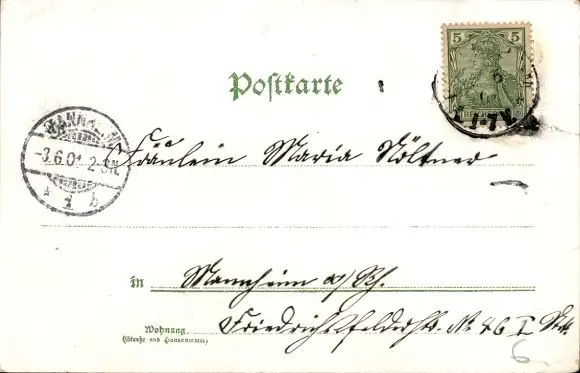 Postkarte
5 5
MANNH
3.6.01. 2-3N.
* 1 b
1-2N.
Fräulein Maria Nöltner
in Mannheim a/Rh.
Wohnung
(Straße und Hausnummer)
Friedrichsfelderstr. Nr. 46 I Stock
6